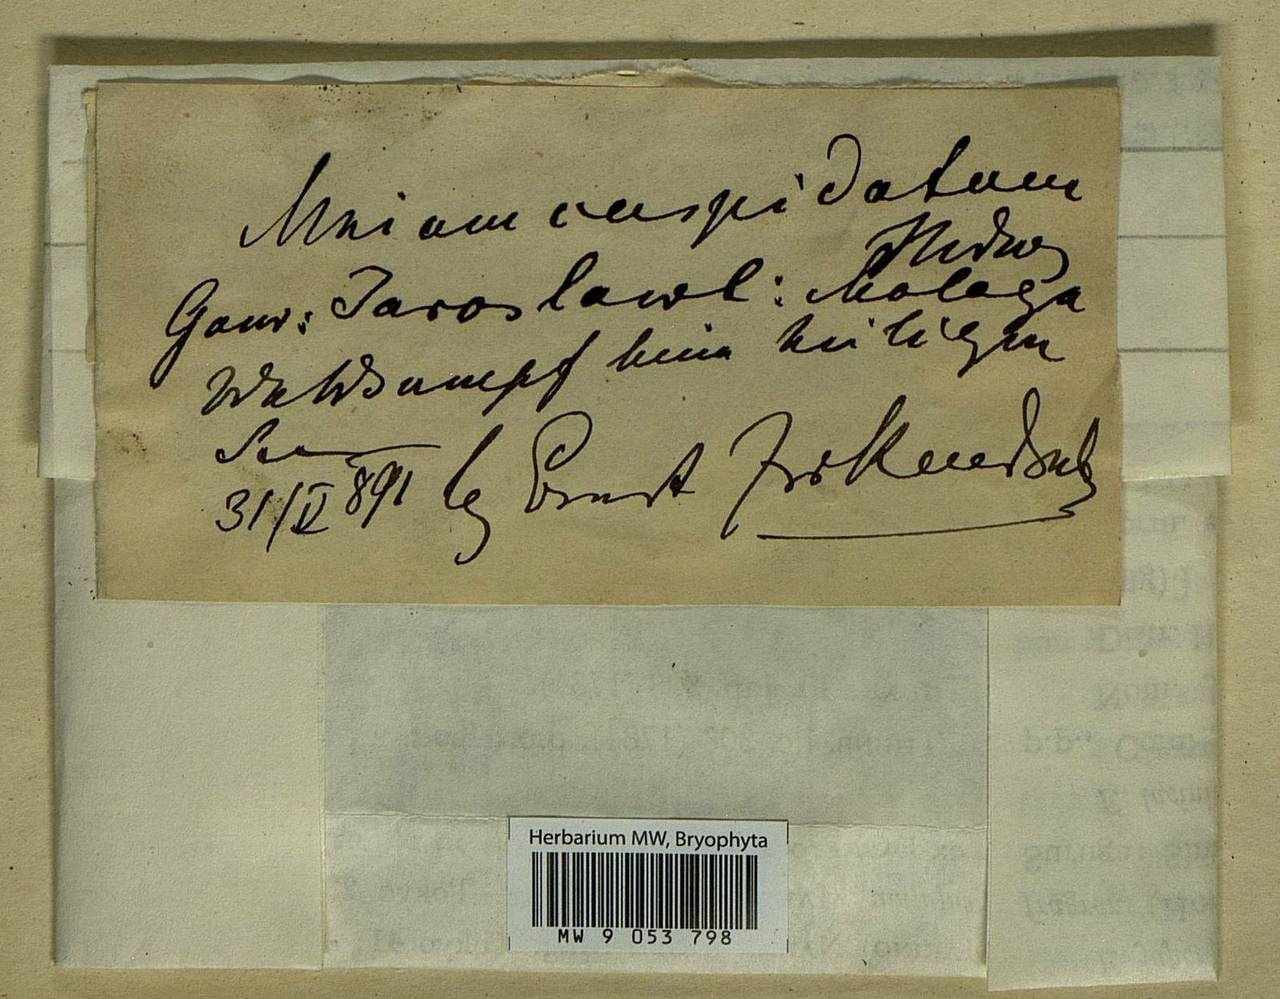 Mnium cuspidatum
Hedwg
Gouv: Jaroslawl: Mologa
Waldsumpf beim heiligen
See
31/V 891 lg Ernst
Herbarium MW, Bryophyta
MW 9 053 798